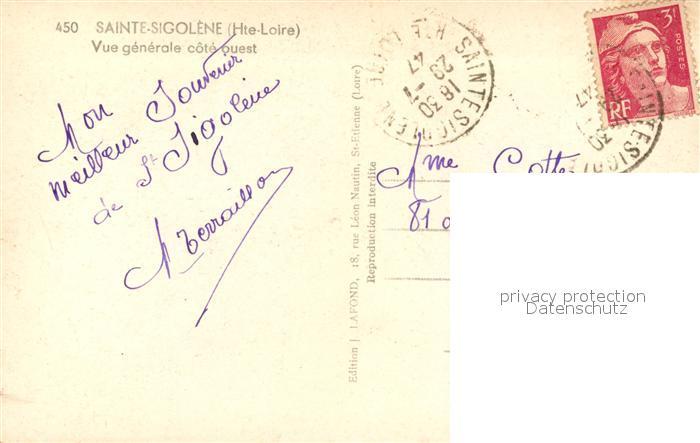 450 SAINTE-SIGOLÈNE (Hte-Loire)
Vue générale côté ouest
Mon Souvenir
meilleur
de St Sigolène
Edition J LAFOND, 18, rue Léon Nautin, St-Etienne (Loire)
Reproduction interdite
SAINTE SIGOLENE
HTE LOIRE
18 30
29 -1
47
3F
POSTES
RF
30
47
TE-SIGOL
Mme Cotte
81
privacy protection
Datenschutz